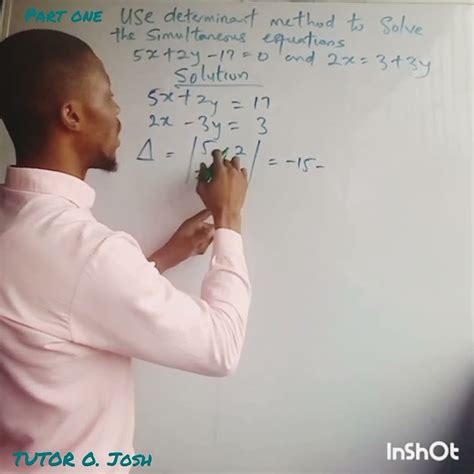 Part one
Use determinant method to solve
the simultaneous equations
5x+2y-17=0 and 2x=3+3y
Solution
5x+2y = 17
2x - 3y = 3
Δ = | 5 2 | = -15-
TUTOR O. Josh
InShOt